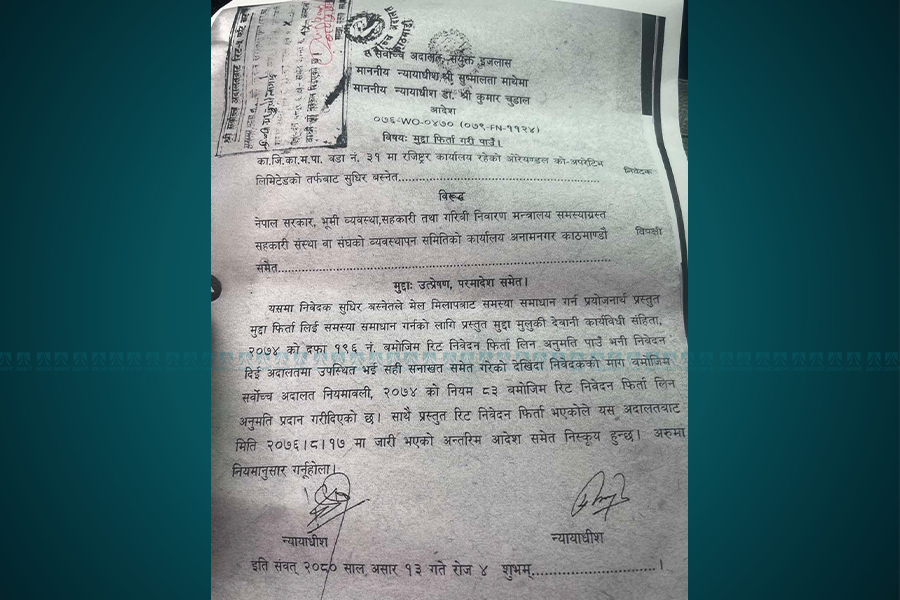 सर्वोच्च अदालत, संयुक्त इजलास
माननीय न्यायाधीश श्री सुष्मालता माथेमा
माननीय न्यायाधीश डा. श्री कुमार चुडाल
आदेश
०७६-WO-०४७० (०७९-FN-११२४)
विषयः मुद्दा फिर्ता गरी पाउँ।
का.जि.का.म.पा. वडा नं. ३१ मा रजिष्ट्रर कार्यालय रहेको ओरियण्डल को-अपरेटिभ
लिमिटेडको तर्फबाट सुधिर बस्नेत............................................ निवेदक
विरूद्ध
नेपाल सरकार, भूमी व्यवस्था,सहकारी तथा गरिवी निवारण मन्त्रालय समस्याग्रस्त
सहकारी संस्था वा संघको व्यवस्थापन समितिको कार्यालय अनामनगर काठमाण्डौ विपक्षी
समेत............................................................
मुद्दाः उत्प्रेषण, परमादेश समेत।
यसमा निवेदक सुधिर बस्नेतले मेल मिलापबाट समस्या समाधान गर्न प्रयोजनार्थ प्रस्तुत
मुद्दा फिर्ता लिई समस्या समाधान गर्नको लागि प्रस्तुत मुद्दा मुलुकी देवानी कार्यविधी संहिता,
२०७४ को दफा १९६ नं. बमोजिम रिट निवेदन फिर्ता लिन अनुमति पाउँ भनी निवेदन
दिई अदालतमा उपस्थित भई सही सनाखत समेत गरेको देखिदा निवेदकको माग बमोजिम
सर्वोच्च अदालत नियमाबली, २०७४ को नियम ८३ बमोजिम रिट निवेदन फिर्ता लिन
अनुमति प्रदान गरीदिएको छ। साथै प्रस्तुत रिट निवेदन फिर्ता भएकोले यस अदालतबाट
मिति २०७६।८।१७ मा जारी भएको अन्तरिम आदेश समेत निस्कृय हुन्छ। अरुमा
नियमानुसार गर्नूहोला।
न्यायाधीश न्यायाधीश
इति संवत् २०८० साल असार १३ गते रोज ४ शुभम्............................।